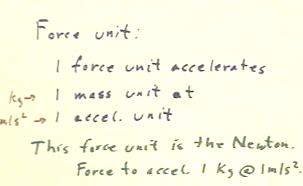 Force unit:
1 force unit accelerates
kg→ 1 mass unit at
m/s² → 1 accel. unit
This force unit is the Newton.
Force to accel. 1 kg @ 1m/s².